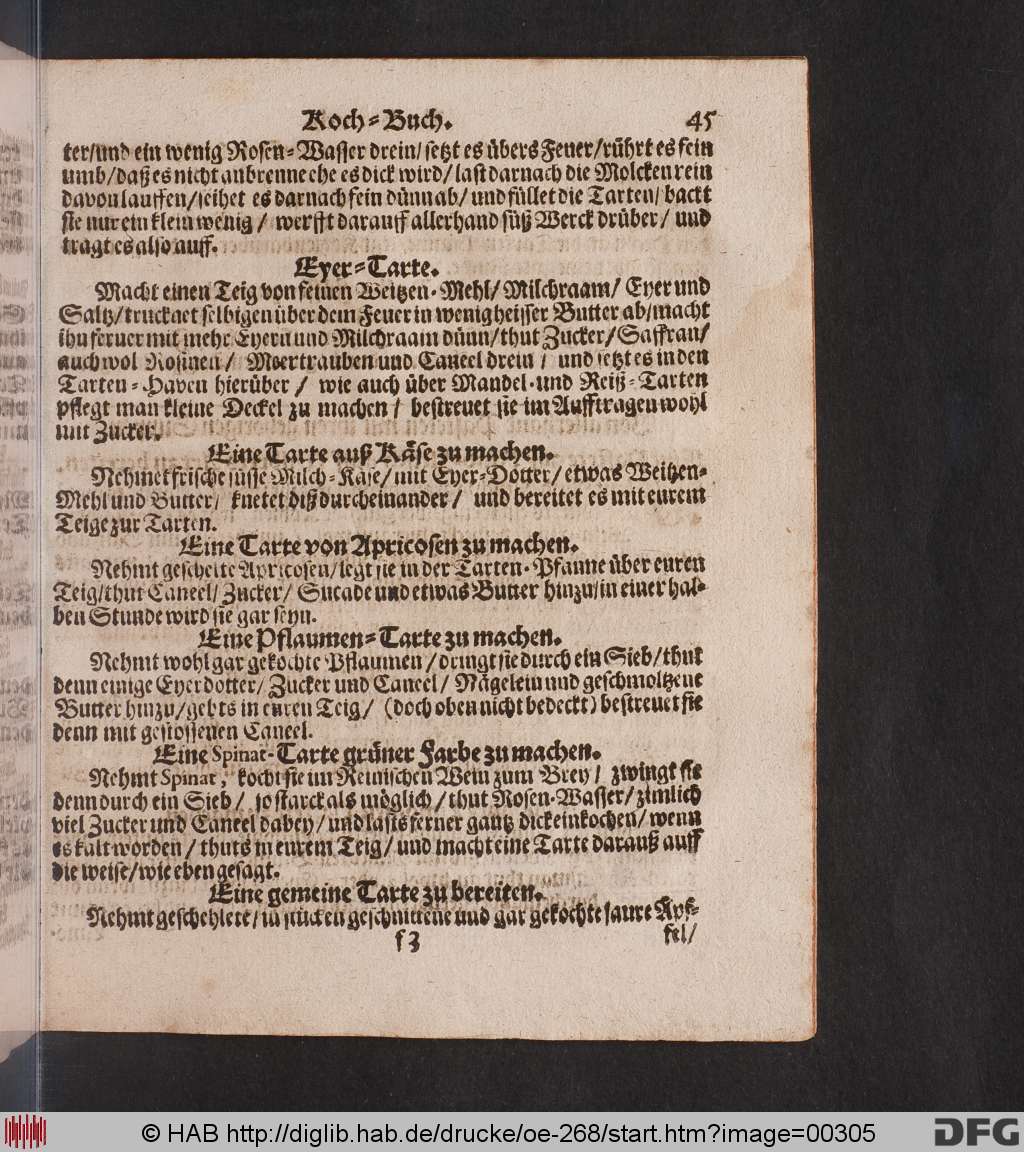 Koch-Buch. 45
ter/und ein wenig Rosen-Wasser drein/setzt es übers Feuer/rührt es fein
umb/daß es nicht anbrenne ehe es dick wird/last darnach die Molcken rein
davon lauffen/seihet es darnach fein dünn ab/und füllet die Tarten/backt
sie nur ein klein wenig/ werfft darauff allerhand süß Werck drüber/ und
tragt es also auff.
Eyer-Tarte.
Macht einen Teig von feinen Weitzen-Mehl/Milchraam/ Eyer und
Saltz/trucknet selbigen über dem Feuer in wenig heisser Butter ab/macht
ihn ferner mit mehr Eyern und Milchraam dünn/thut Zucker/Saffran/
auch wol Rosinen/ Meertrauben und Caneel drein/ und setzt es in den
Tarten-Haven hierüber/ wie auch über Mandel-und Reiß-Tarten
pflegt man kleine Deckel zu machen/ bestreuet sie im Aufftragen wohl
mit Zucker.
Eine Tarte auß Käse zu machen.
Nehmet frische süsse Milch-Käse/mit Eyer-Dotter/etwas Weitzen-
Mehl und Butter/ knetet diß durcheinander/ und bereitet es mit eurem
Teige zur Tarten.
Eine Tarte von Apricosen zu machen.
Nehmt gescheite Apricosen/legt sie in der Tarten-Pfanne über euren
Teig/thut Caneel/Zucker/ Sucade und etwas Butter hinzu/in einer hal-
ben Stunde wird sie gar seyn.
Eine Pflaumen-Tarte zu machen.
Nehmt wohl gar gekochte Pflaumen/dringt sie durch ein Sieb/thut
denn einige Eyerdotter/Zucker und Caneel/ Nägelein und geschmoltzene
Butter hinzu/gebts in euren Teig/ (doch oben nicht bedeckt) bestreuet sie
denn mit gestossenen Caneel.
Eine Spinat-Tarte grüner Farbe zu machen.
Nehmt Spinat, kocht sie im Reinischen Wein zum Brey/ zwingt sie
denn durch ein Sieb/ so starck als möglich/thut Rosen-Wasser/zimlich
viel Zucker und Caneel dabey/und lasts ferner gantz dick einkochen/wenn
es kalt worden/thuts in eurem Teig/und macht eine Tarte darauß auff
die weise/wie eben gesagt.
Eine gemeine Tarte zu bereiten.
Nehmt geschehlete/in stücken geschnittene und gar gekochte saure Äpf-
f 3 fel/
© HAB http://diglib.hab.de/drucke/oe-268/start.htm?image=00305
DFG